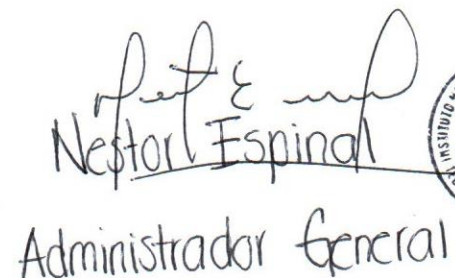 Nestor Espinal
Administrador General
INSTITUTO